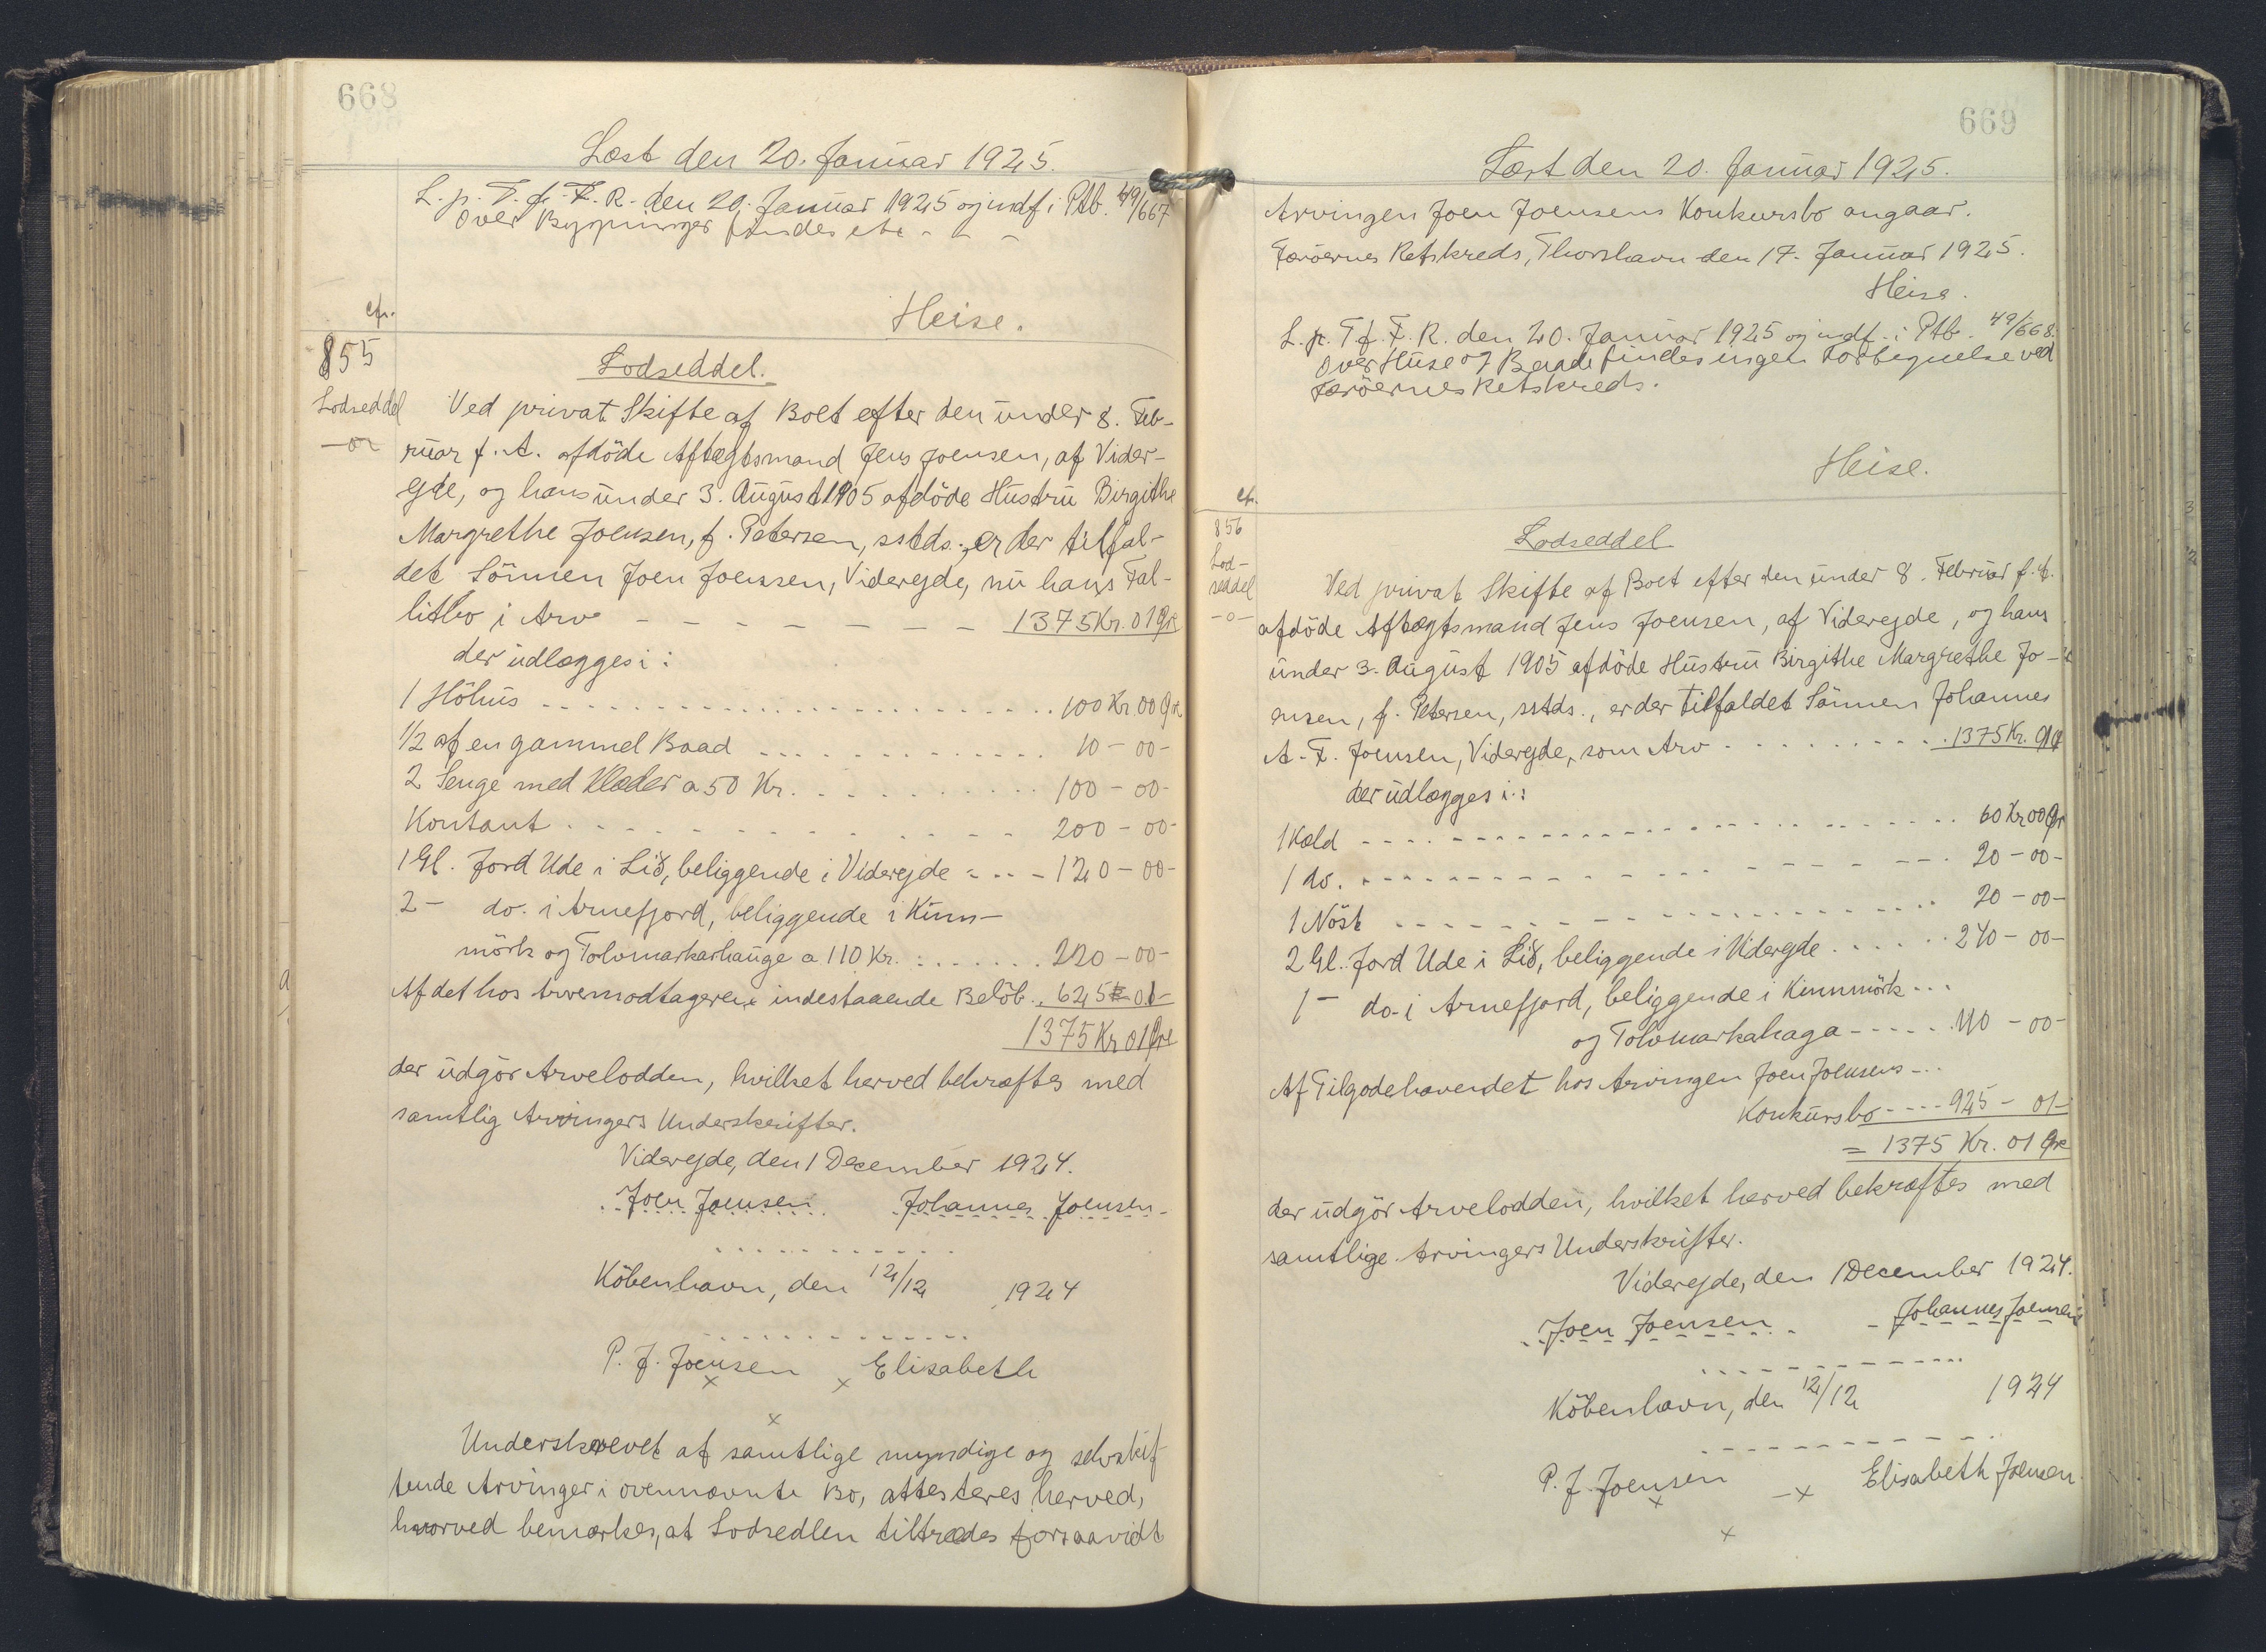 668
Læst den 20. Januar 1925.
L. p. T. f. F. R. den 20. Januar 1925 og indf. i Ptb. 49/667
Over Bygninger findes etc - - -
Heise.
cfr.
855
Lodseddel
-o-
Lodseddel.
Ved privat Skifte af Boet efter den under 8. Feb-
ruar f. A. afdöde Aftægtsmand Jens Joensen, af Vider-
ejde, og hans under 3. August 1905 afdöde Hustru Birgithe
Margrethe Joensen, f. Petersen, sstds., er der tilfal-
det Sönnen Joen Joensen, Viderejde, nu hans Fal-
litbo i Arv - - - - - - - - 1375 Kr. 01 Øre
der udlægges i:
1 Höhus - - - - - - - - 100 Kr. 00 Øre
1/2 af en gammel Baad - - - - - - 10 - 00 -
2 Senge med Klæder a 50 Kr. - - - - - 100 - 00 -
Kontant - - - - - - - - 200 - 00 -
1 Gl. Jord Ude i Lið, beliggende i Viderejde - - - 120 - 00 -
2 - do. i Arnefjord, beliggende i Kinn-
mörk og Tolvmarkarhauge a 110 Kr. - - - - 220 - 00 -
Af det hos Arvemodtageren indestaaende Belöb. 625 - 01 -
1375 Kr 01 Øre
der udgör Arvelodden, hvilket herved bekræftes med
samtlig Arvingers Underskrifter.
Viderejde, den 1 December 1924.
Joen Joensen Johannes Joensen
Köbenhavn, den 12/12 1924
P. J. Joensen x x Elisabeth
x
Underskrevet af samtlige myndige og selvskif-
tende Arvinger i ovennævnte Bo, attesteres herved,
hvorved bemærkes, at Lodsedlen tiltrædes forsaavidt
669
Læst den 20. Januar 1925.
Arvingen Joen Joensens Konkursbo angaar.
Færöernes Retskreds, Thorshavn den 17. Januar 1925.
Heise.
L. p. T. f. F. R. den 20. Januar 1925 og indf. i Ptb. 49/668.
Over Huse og Baade findes ingen Forbignelse ved
Færöernes Retskreds.
Heise.
cfr.
856
Lod-
seddel
-o-
Lodseddel
Ved privat Skifte af Boet efter den under 8. Februar f. A.
afdöde Aftægtsmand Jens Joensen, af Viderejde, og hans
under 3. August 1905 afdöde Hustru Birgithe Margrethe Jo-
ensen, f. Petersen, sstds., er der tilfaldet Sönnen Johannes
A. F. Joensen, Viderejde, som Arv - - - - - 1375 Kr. 01 Ø
der udlægges i:
1 Kæld - - - - - - - - 60 Kr 00 Ør
1 do. - - - - - - - - 20 - 00 -
1 Nöst - - - - - - - - 20 - 00 -
2 Gl. Jord Ude i Lið, beliggende i Viderejde - - - 240 - 00 -
1 - do. i Arnefjord, beliggende i Kinnmörk - - -
og Tolvmarkahaga - - - - - 110 - 00 -
Af Tilgodehavendet hos Arvingen Joen Joensens - - -
Konkursbo - - - - 925 - 01 -
= 1375 Kr. 01 Øre
der udgör Arvelodden, hvilket herved bekræftes med
samtlige Arvingers Underskrifter.
Viderejde, den 1 December 1924.
Joen Joensen - Johannes Joensen
Köbenhavn, den 12/12 1924
P. J. Joensen x - x Elisabeth Joensen
x